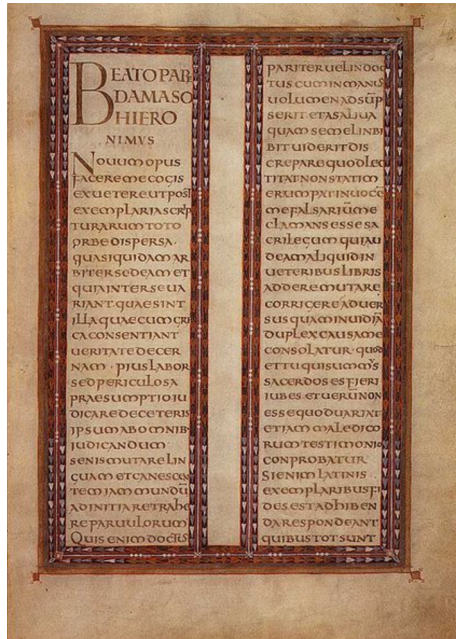 BEATO PAP
DAMASO
HIERO
NIMVS
Nouum opus
facere me cogis
ex uetere ut post
exemplaria scrip
turarum toto
orbe dispersa
quasi quidam ar
biter sedeam et
quia inter se ua
riant quae sint
illa quae cum gre
ca consentiant
ueritate decer
nam · pius labor
sed periculosa
praesumptio iu
dicare de ceteris
ipsum ab omnib·
iudicandum
senis mutare lin
guam et canescen
tem iam mundū
ad initia retrahe
re paruulorum
Quis enim doctus
pariter uel indoc
tus cum in manus
uolumen adsūp
serit et a saliua
quam semel inbi
bit uiderit dis
crepare quod lec
titat non statim
erumpat in uocē
me falsariū me
clamans esse sa
crilegum qui au
deam aliquid in
ueteribus libris
addere mutare
corrigere aduer
sus quam inuidiā
duplex causa me
consolatur · quod
et tu qui summus
sacerdos es fieri
iubes et uerū non
esse quod uariat
etiam maledico
rum testimonio
conprobatur
Si enim latinis
exemplaribus fi
des est adhiben
da respondeant
quibus tot sunt